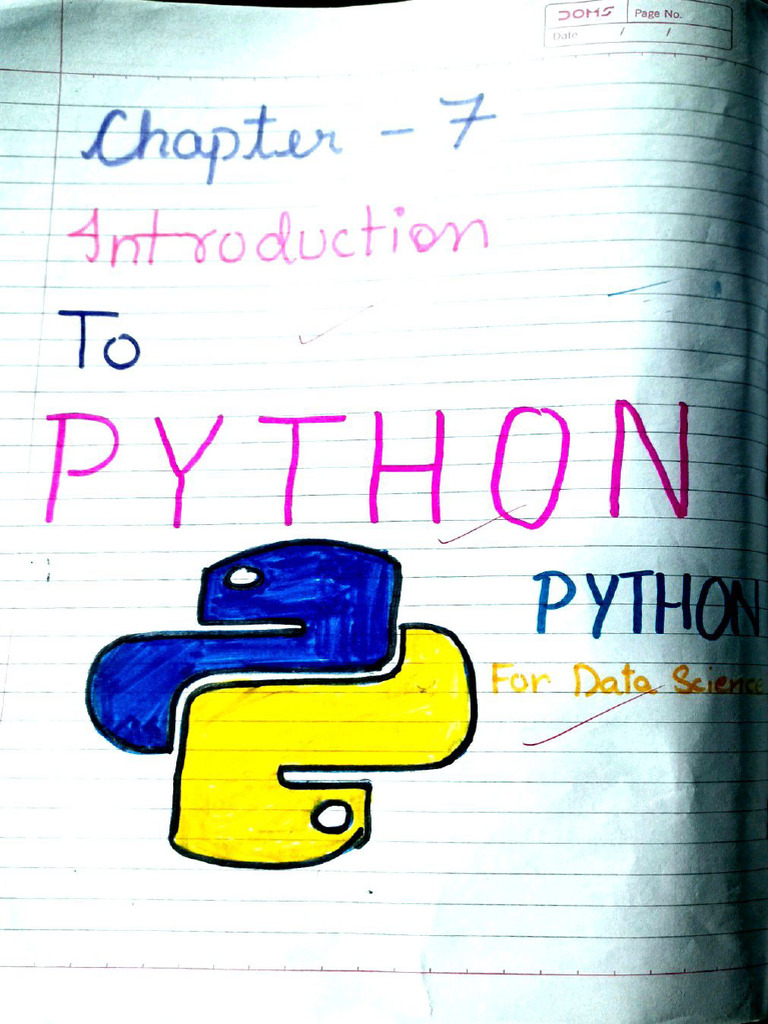 DOMS Page No.
Date / /
Chapter - 7
Introduction
To
PYTHON
PYTHON
For Data Science